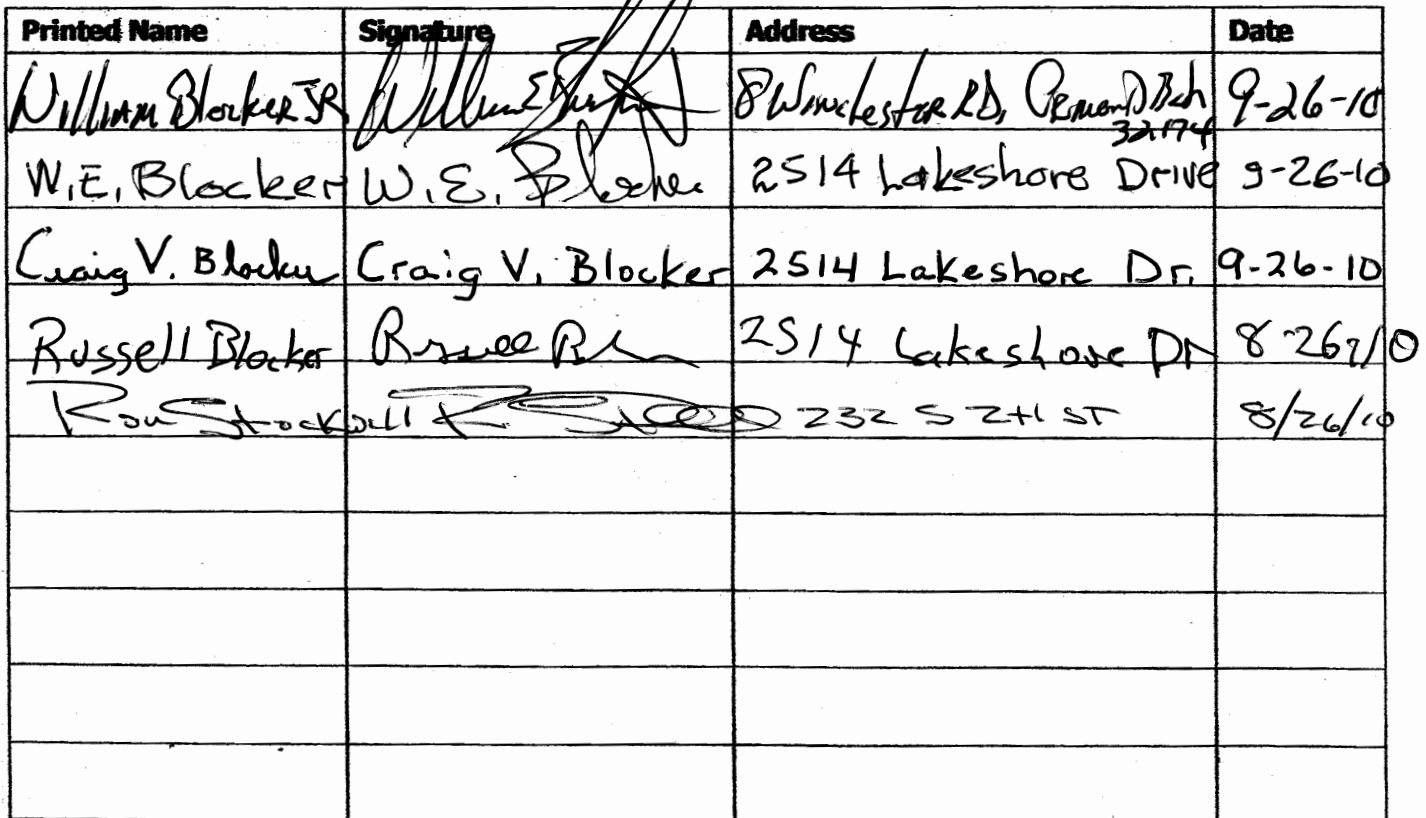 Printed Name Signature Address Date
William Blocker JR William E 8 Winchester RD, Ormond Bch 9-26-10
32174
W.E. Blocker W.E. Blocker 2514 Lakeshore Drive 9-26-10
Craig V. Blocker Craig V. Blocker 2514 Lakeshore Dr. 9-26-10
Russell Blocker Russell 2514 Lakeshore Dr 8-26-10
Ron Stockwell R 232 S 8/26/10